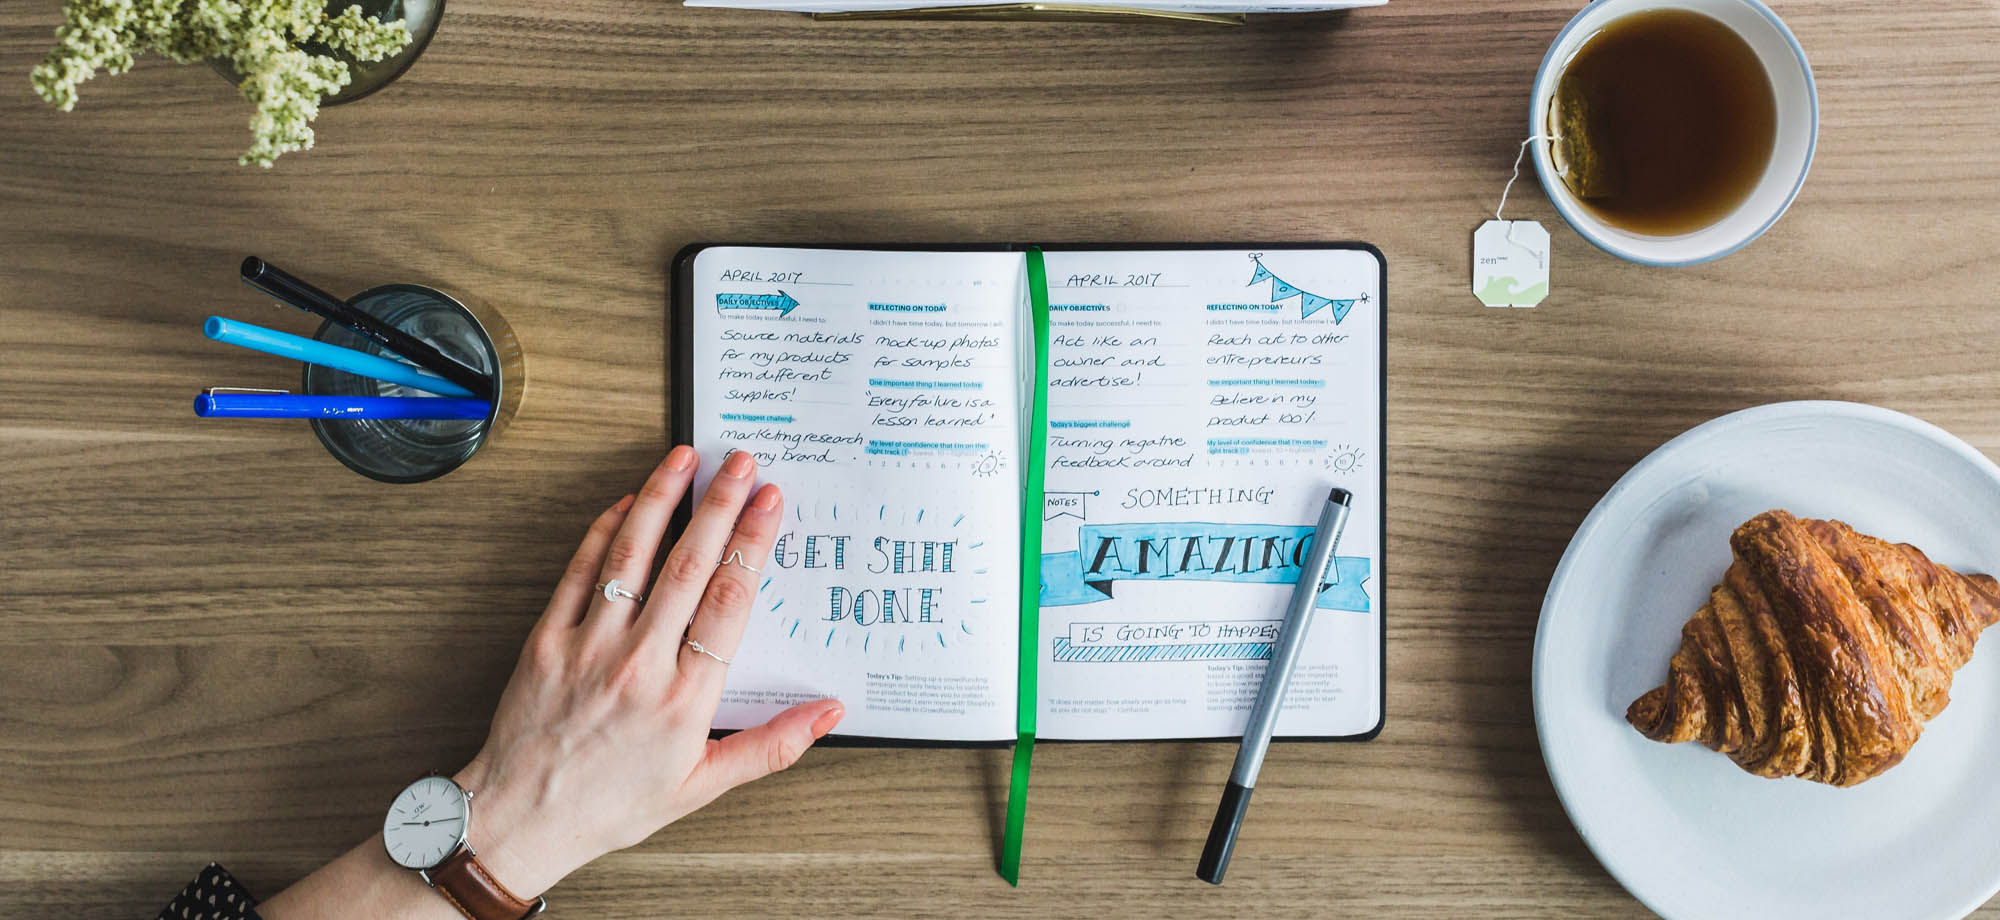 APRIL 2017
DAILY OBJECTIVES
To make today successful, I need to:
Source materials
for my products
from different
suppliers!
Today's biggest challenge
marketing research
for my brand.
REFLECTING ON TODAY
I didn't have time today, but tomorrow I will
mock-up photos
for samples
One important thing I learned today
"Every failure is a
lesson learned"
My level of confidence that I'm on the
right track (1 = lowest, 10 = highest)
1 2 3 4 5 6 7 8 9 10
GET SHIT
DONE
only strategy that is guaranteed to fail
not taking risks." – Mark
Today's Tip: Setting up a crowdfunding
campaign not only helps you to validate
your product but allows you to collect
money upfront. Learn more with Shopify's
Ultimate Guide to Crowdfunding.
APRIL 2017
DAILY OBJECTIVES
To make today successful, I need to:
Act like an
owner and
advertise!
Today's biggest challenge
Turning negative
feedback around
REFLECTING ON TODAY
I didn't have time today, but tomorrow I will
Reach out to other
entrepreneurs
One important thing I learned today
Believe in my
product 100%
My level of confidence that I'm on the
right track (1 = lowest, 10 = highest)
1 2 3 4 5 6 7 8 9 10
NOTES
SOMETHING
AMAZING
IS GOING TO HAPPEN
"It does not matter how slowly you go as long
as you do not stop." – Confucius
Today's Tip: product's
trend is a good important
to know how many are currently
searching for you idea each month.
Use google.com a place to start
learning about searches.
zen